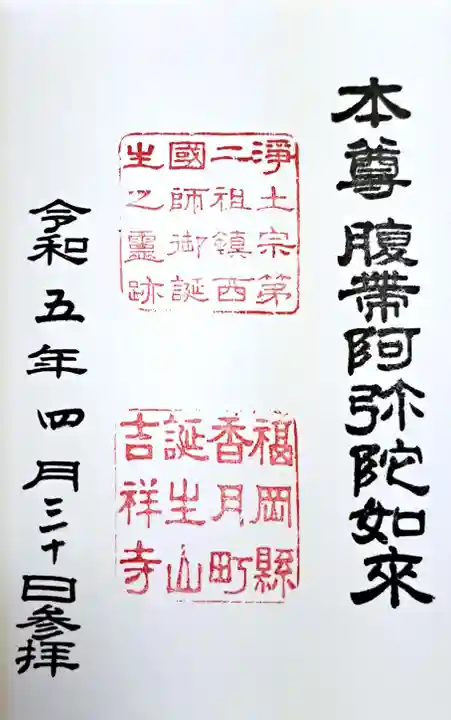 本尊 腹帯阿弥陀如來
淨土宗第
二祖鎮西
國師御誕
生之靈跡
福岡縣
香月町
誕生山
吉祥寺
令和五年四月三十日参拝